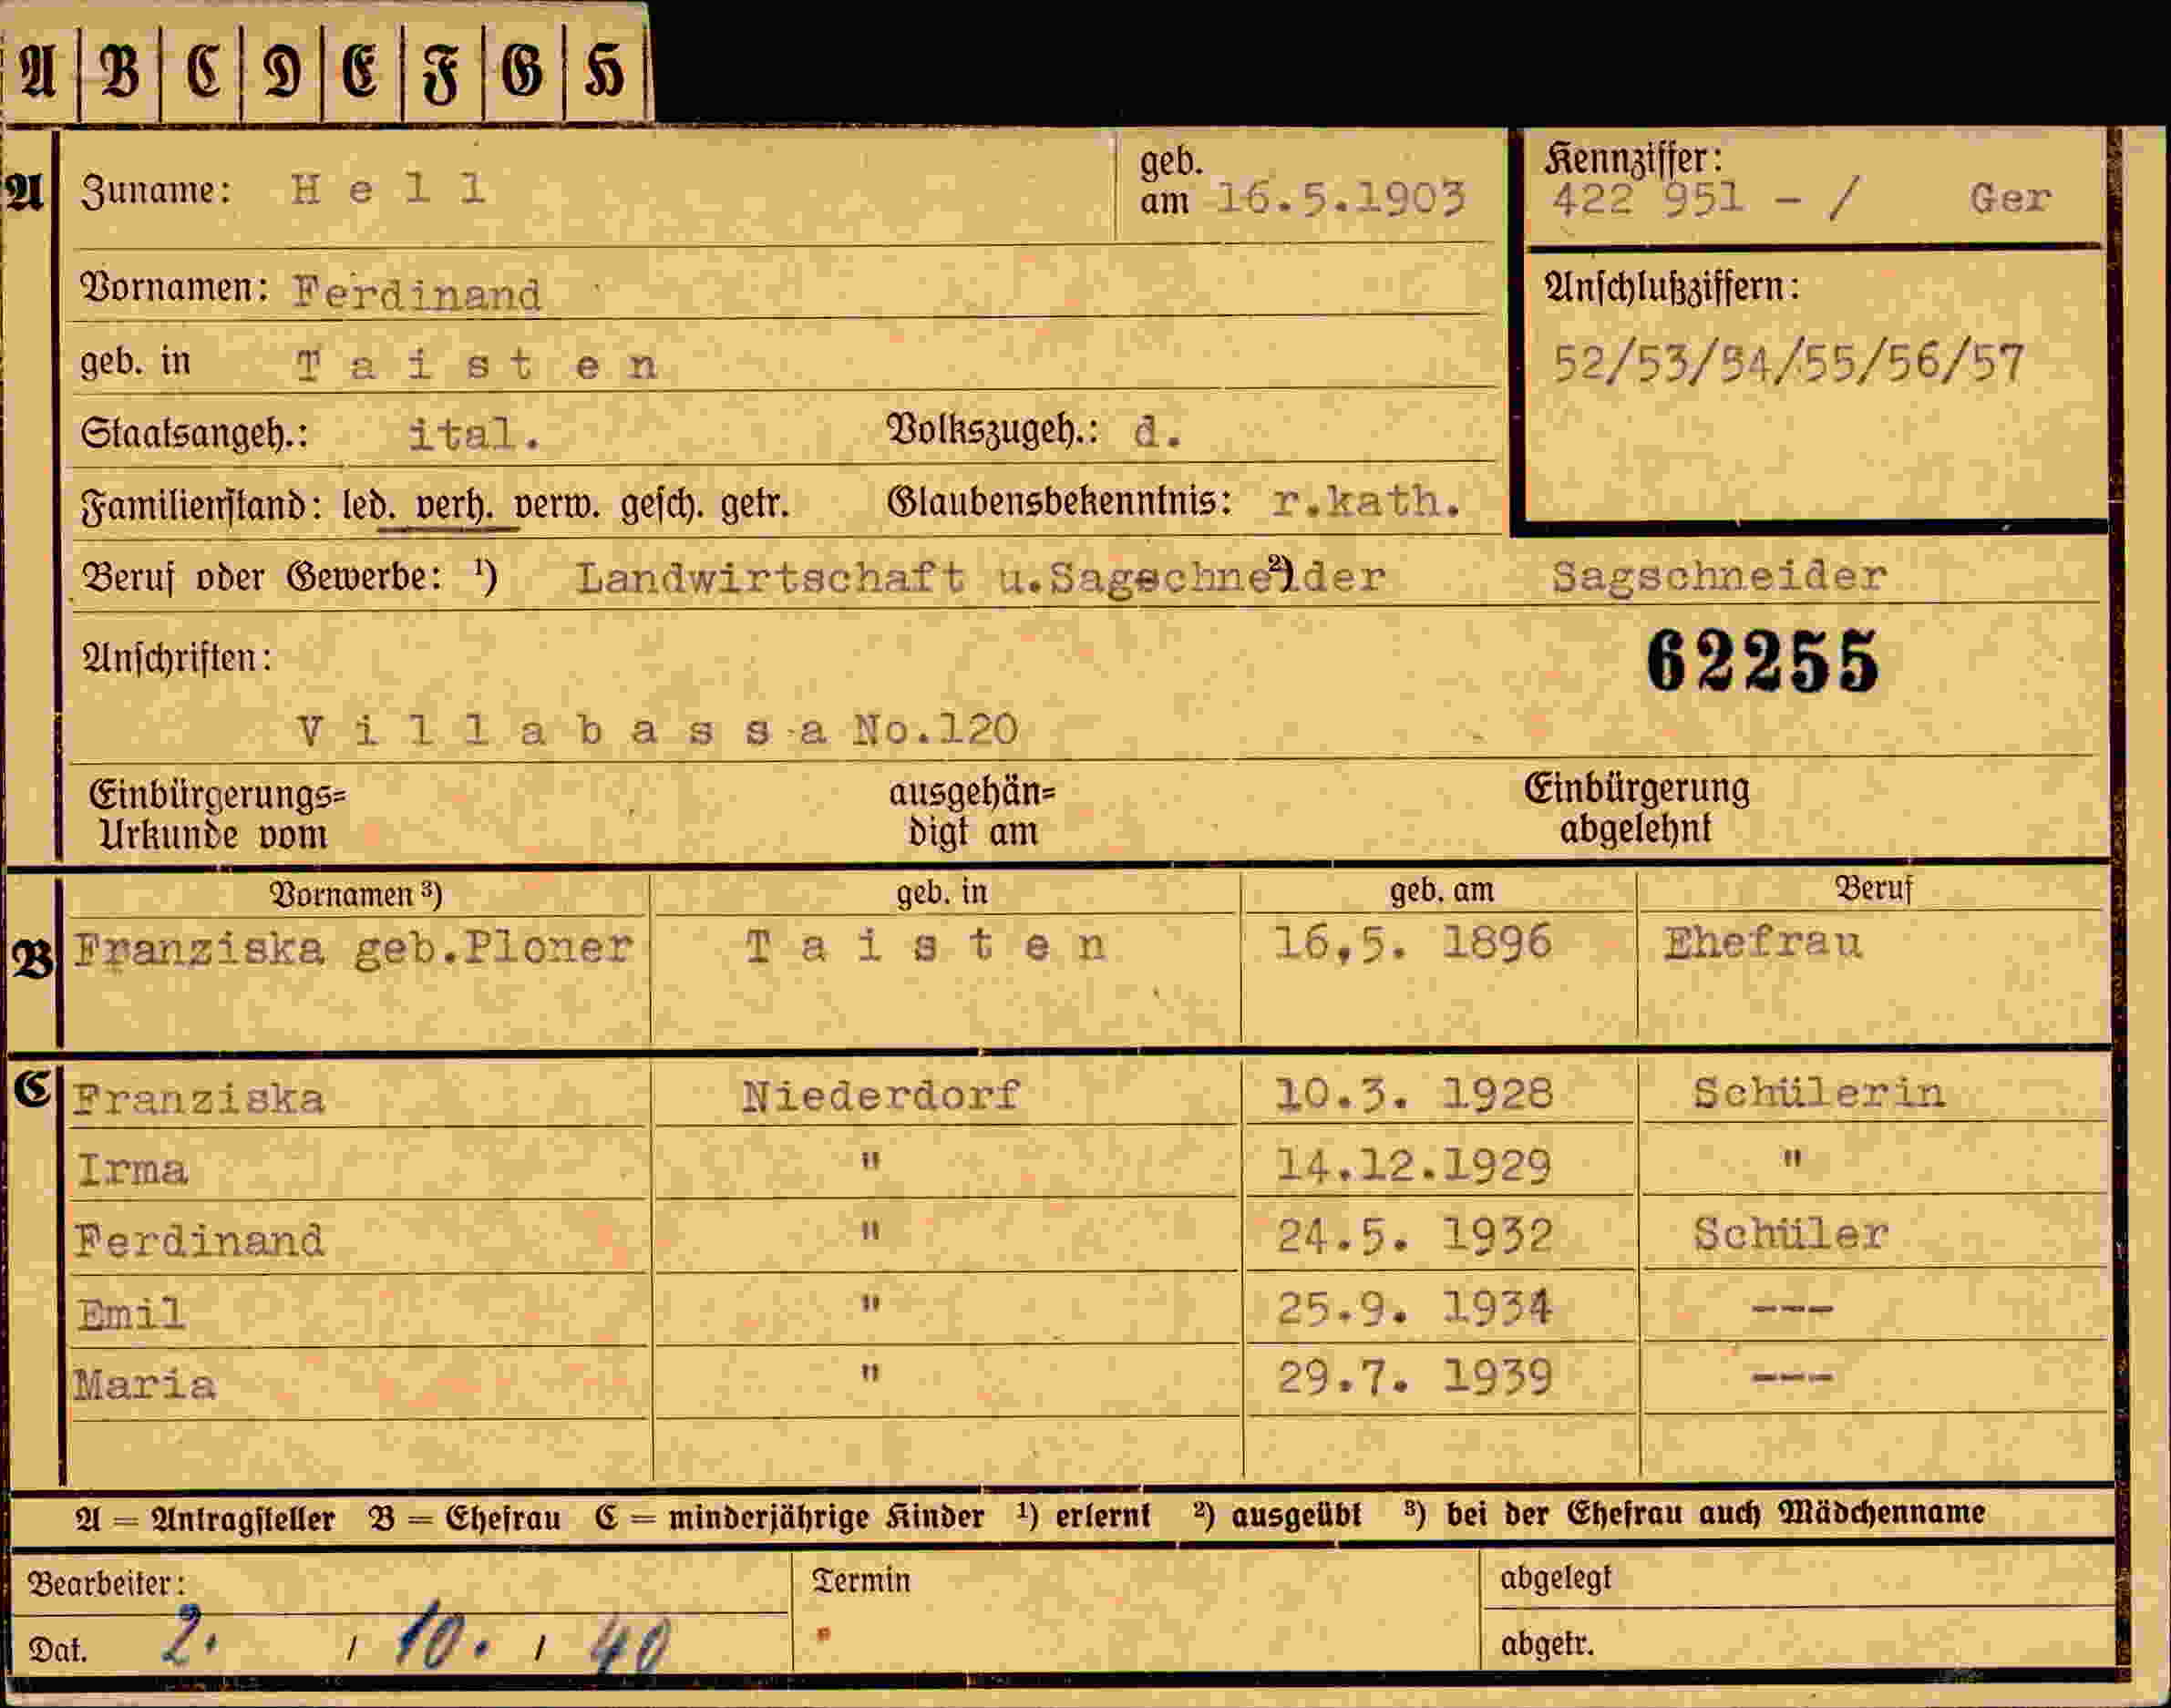 A B C D E F G H
A Zuname: Hell geb. am 16.5.1903 Kennziffer: 422 951 - / Ger
Vornamen: Ferdinand Anschlußziffern:
geb. in Taisten 52/53/54/55/56/57
Staatsangeh.: ital. Volkszugeh.: d.
Familienstand: led. verh. verw. gesch. getr. Glaubensbekenntnis: r.kath.
Beruf oder Gewerbe: ¹) Landwirtschaft u.Sagschneider ²) Sagschneider
Anschriften: 62255
Villabassa No.120
Einbürgerungs= ausgehän= Einbürgerung
Urkunde vom digt am abgelehnt
Vornamen ³) geb. in geb. am Beruf
B Franziska geb.Ploner Taisten 16.5. 1896 Ehefrau
C Franziska Niederdorf 10.3. 1928 Schülerin
Irma " 14.12.1929 "
Ferdinand " 24.5. 1932 Schüler
Emil " 25.9. 1934 ---
Maria " 29.7. 1939 ---
A = Antragsteller B = Ehefrau C = minderjährige Kinder ¹) erlernt ²) ausgeübt ³) bei der Ehefrau auch Mädchenname
Bearbeiter: Termin abgelegt
Dat. 2. / 10. / 40 abgetr.